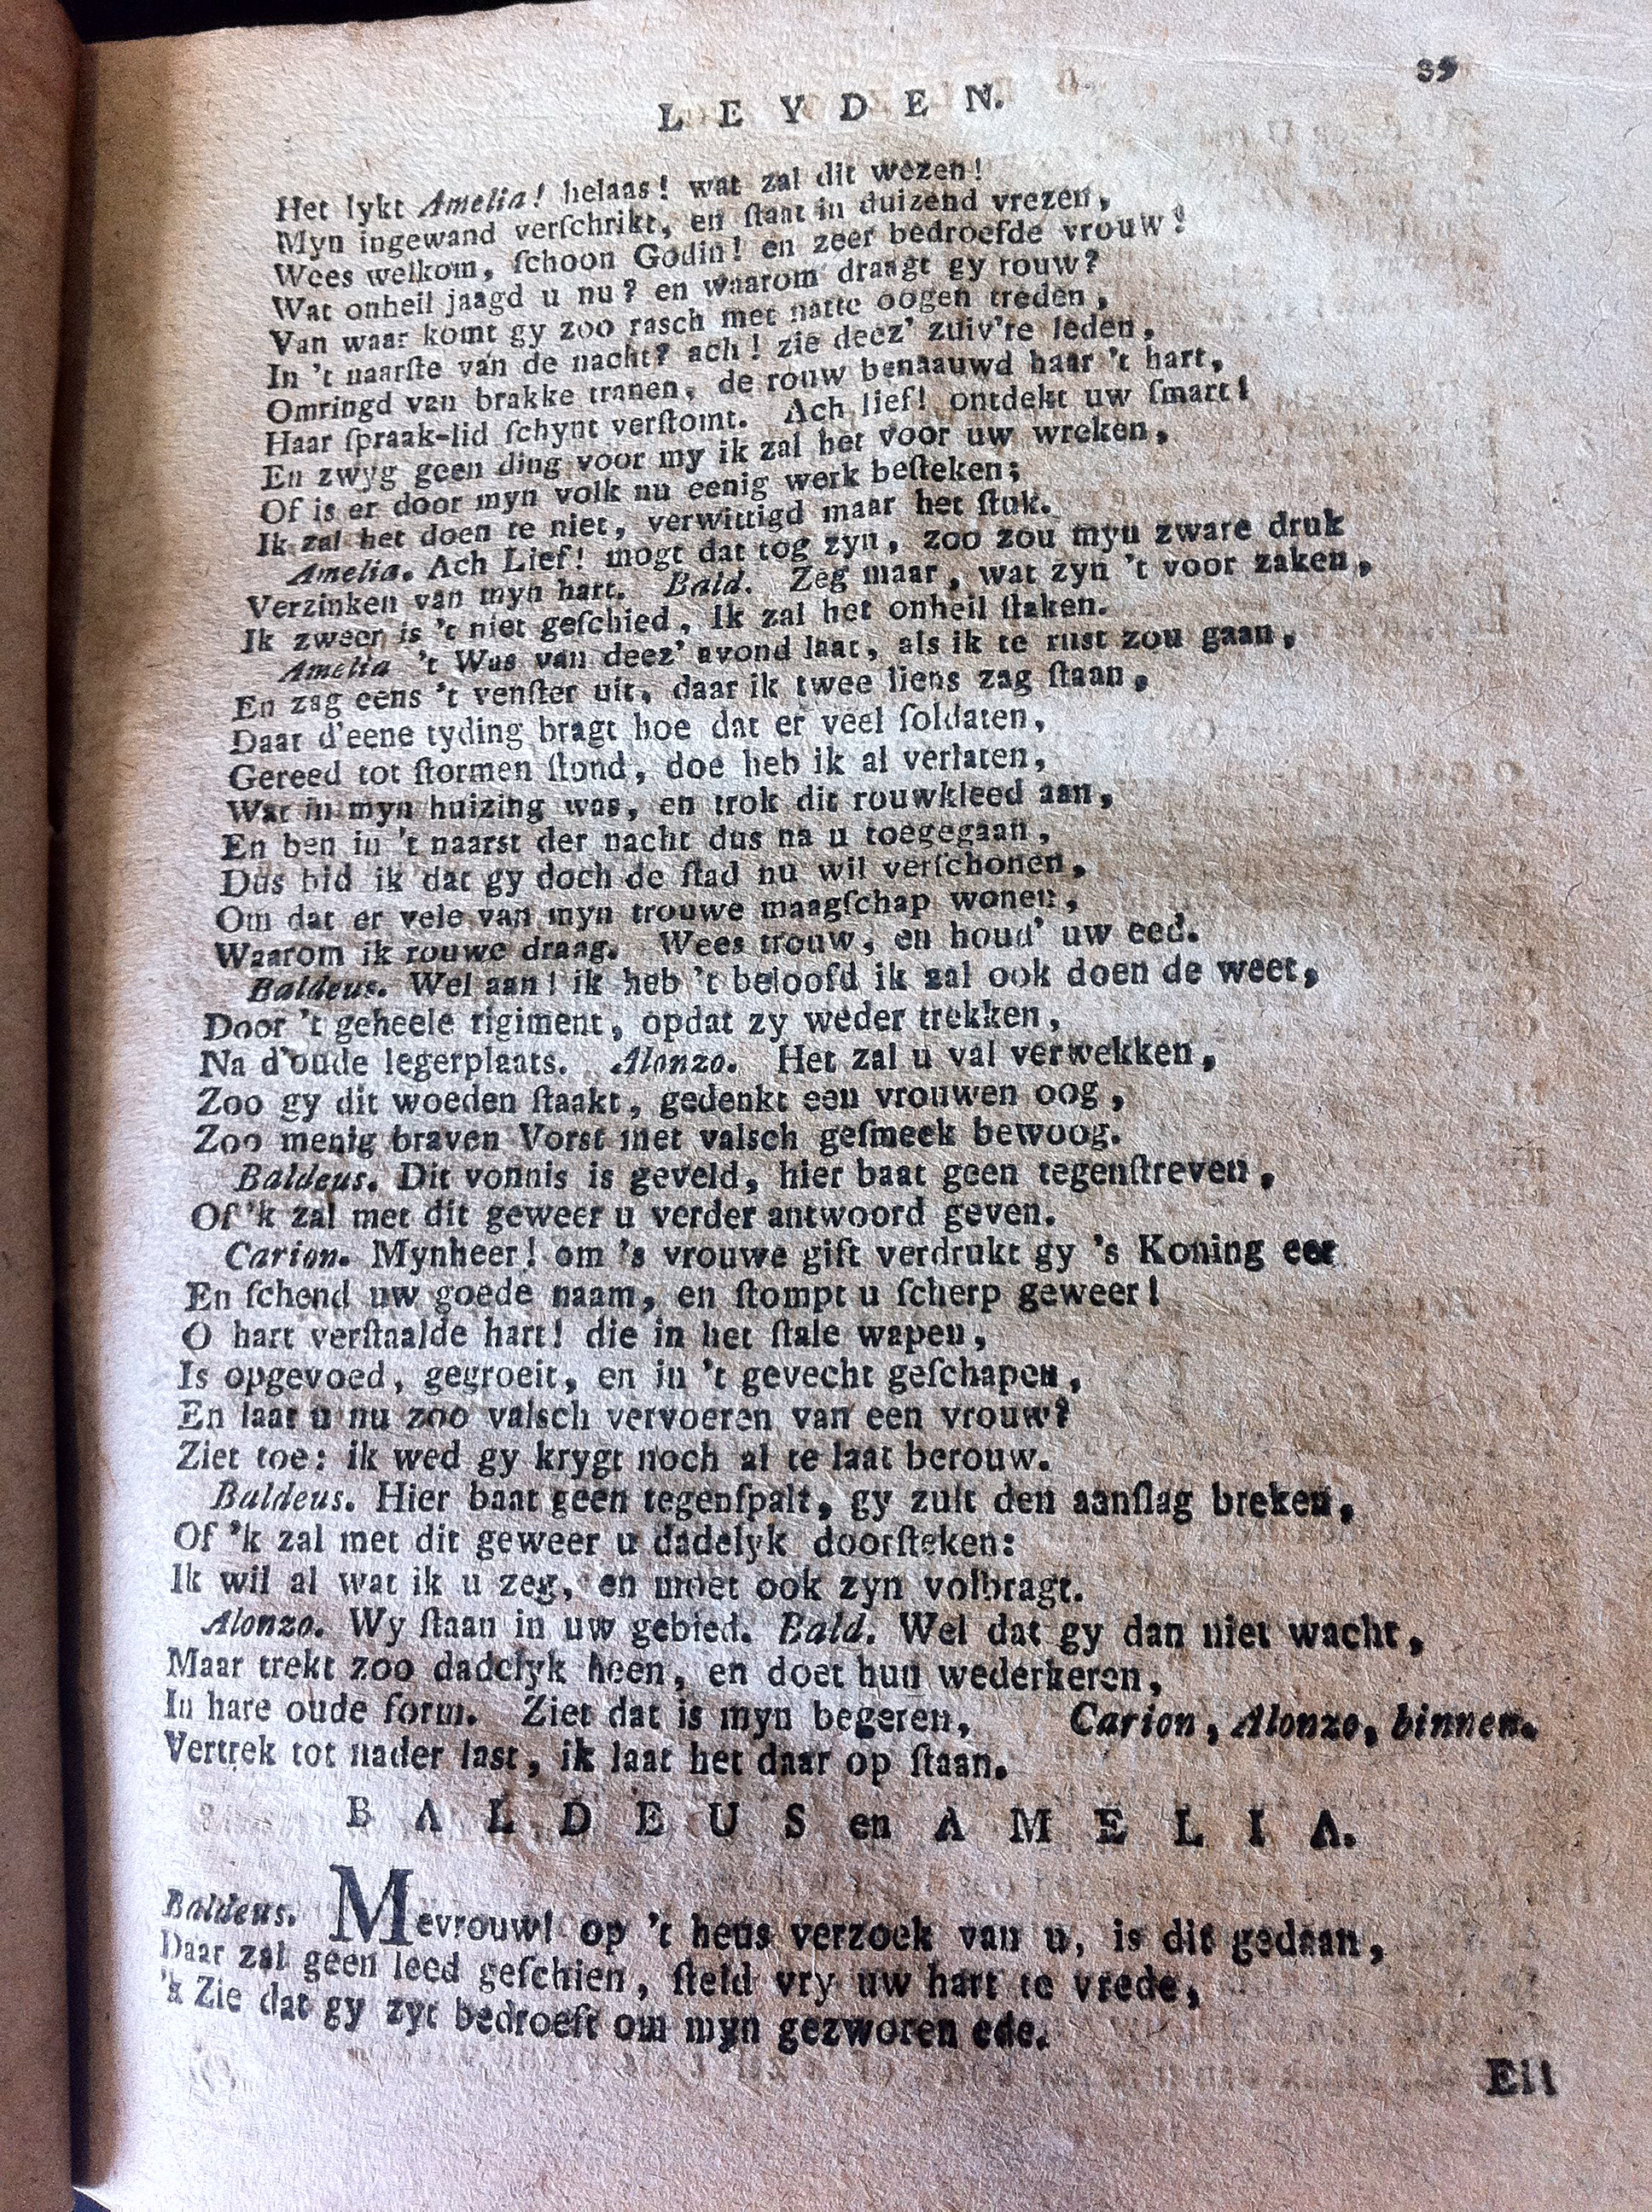 39
LEYDEN.
Het lykt Amelia! helaas! wat zal dit wezen!
Myn ingewand verſchrikt, en ſtaat in duizend vrezen,
Wees welkom, ſchoon Godin! en zeer bedroefde vrouw!
Wat onheil jaagd u nu? en waarom draagt gy rouw?
Van waar komt gy zoo rasch met natte oogen treden,
In 't naarſte van de nacht? ach! zie deez' zuiv're leden,
Omringd van brakke tranen, de rouw benaauwd haar 't hart,
Haar ſpraak-lid ſchynt verſtomt. Ach lief! ontdekt uw ſmart!
En zwyg geen ding voor my ik zal het voor uw wreken,
Of is er door myn volk nu eenig werk beſteken;
Ik zal het doen te niet, verwittigd maar het ſtuk.
Amelia. Ach Lief! mogt dat tog zyn, zoo zou myn zware druk
Verzinken van myn hart. Bald. Zeg maar, wat zyn 't voor zaken,
Ik zweer is 't niet geſchied, Ik zal het onheil ſtaken.
Amelia 't Was van deez' avond laat, als ik te rust zou gaan,
En zag eens 't venſter uit, daar ik twee liens zag ſtaan,
Daar d'eene tyding bragt hoe dat er veel ſoldaten,
Gereed tot ſtormen ſtond, doe heb ik al verlaten,
Wat in myn huizing was, en trok dit rouwkleed aan,
En ben in 't naarst der nacht dus na u toegegaan,
Dus bid ik dat gy doch de ſtad nu wil verſchonen,
Om dat er vele van myn trouwe maagſchap wonen,
Waarom ik rouwe draag. Wees trouw, en houd' uw eed.
Baldeus. Wel aan! ik heb 't beloofd ik zal ook doen de weet,
Door 't geheele rigiment, opdat zy weder trekken,
Na d'oude legerplaats. Alonzo. Het zal u val verwekken,
Zoo gy dit woeden ſtaakt, gedenkt een vrouwen oog,
Zoo menig braven Vorst met valsch geſmeek bewoog.
Baldeus. Dit vonnis is geveld, hier baat geen tegenſtreven,
Of 'k zal met dit geweer u verder antwoord geven.
Carion. Mynheer! om 's vrouwe gift verdrukt gy 's Koning eer
En ſchend uw goede naam, en ſtompt u ſcherp geweer!
O hart verſtaalde hart! die in het ſtale wapen,
Is opgevoed, gegroeit, en in 't gevecht geſchapen,
En laat u nu zoo valsch vervoeren van een vrouw?
Ziet toe: ik wed gy krygt noch al te laat berouw.
Baldeus. Hier baat geen tegenſpalt, gy zult den aanſlag breken,
Of 'k zal met dit geweer u dadelyk doorſteken:
Ik wil al wat ik u zeg, en moet ook zyn volbragt.
Alonzo. Wy ſtaan in uw gebied. Bald. Wel dat gy dan niet wacht,
Maar trekt zoo dadelyk heen, en doet hun wederkeren,
In hare oude form. Ziet dat is myn begeren, Carion, Alonzo, binnen.
Vertrek tot nader last, ik laat het daar op ſtaan.
BALDEUS en AMELIA.
Baldeus. Mevrouw! op 't heus verzoek van u, is dit gedaan,
Daar zal geen leed geſchien, ſteld vry uw hart te vrede,
'k Zie dat gy zyt bedroeft om myn gezworen ede.
Eil